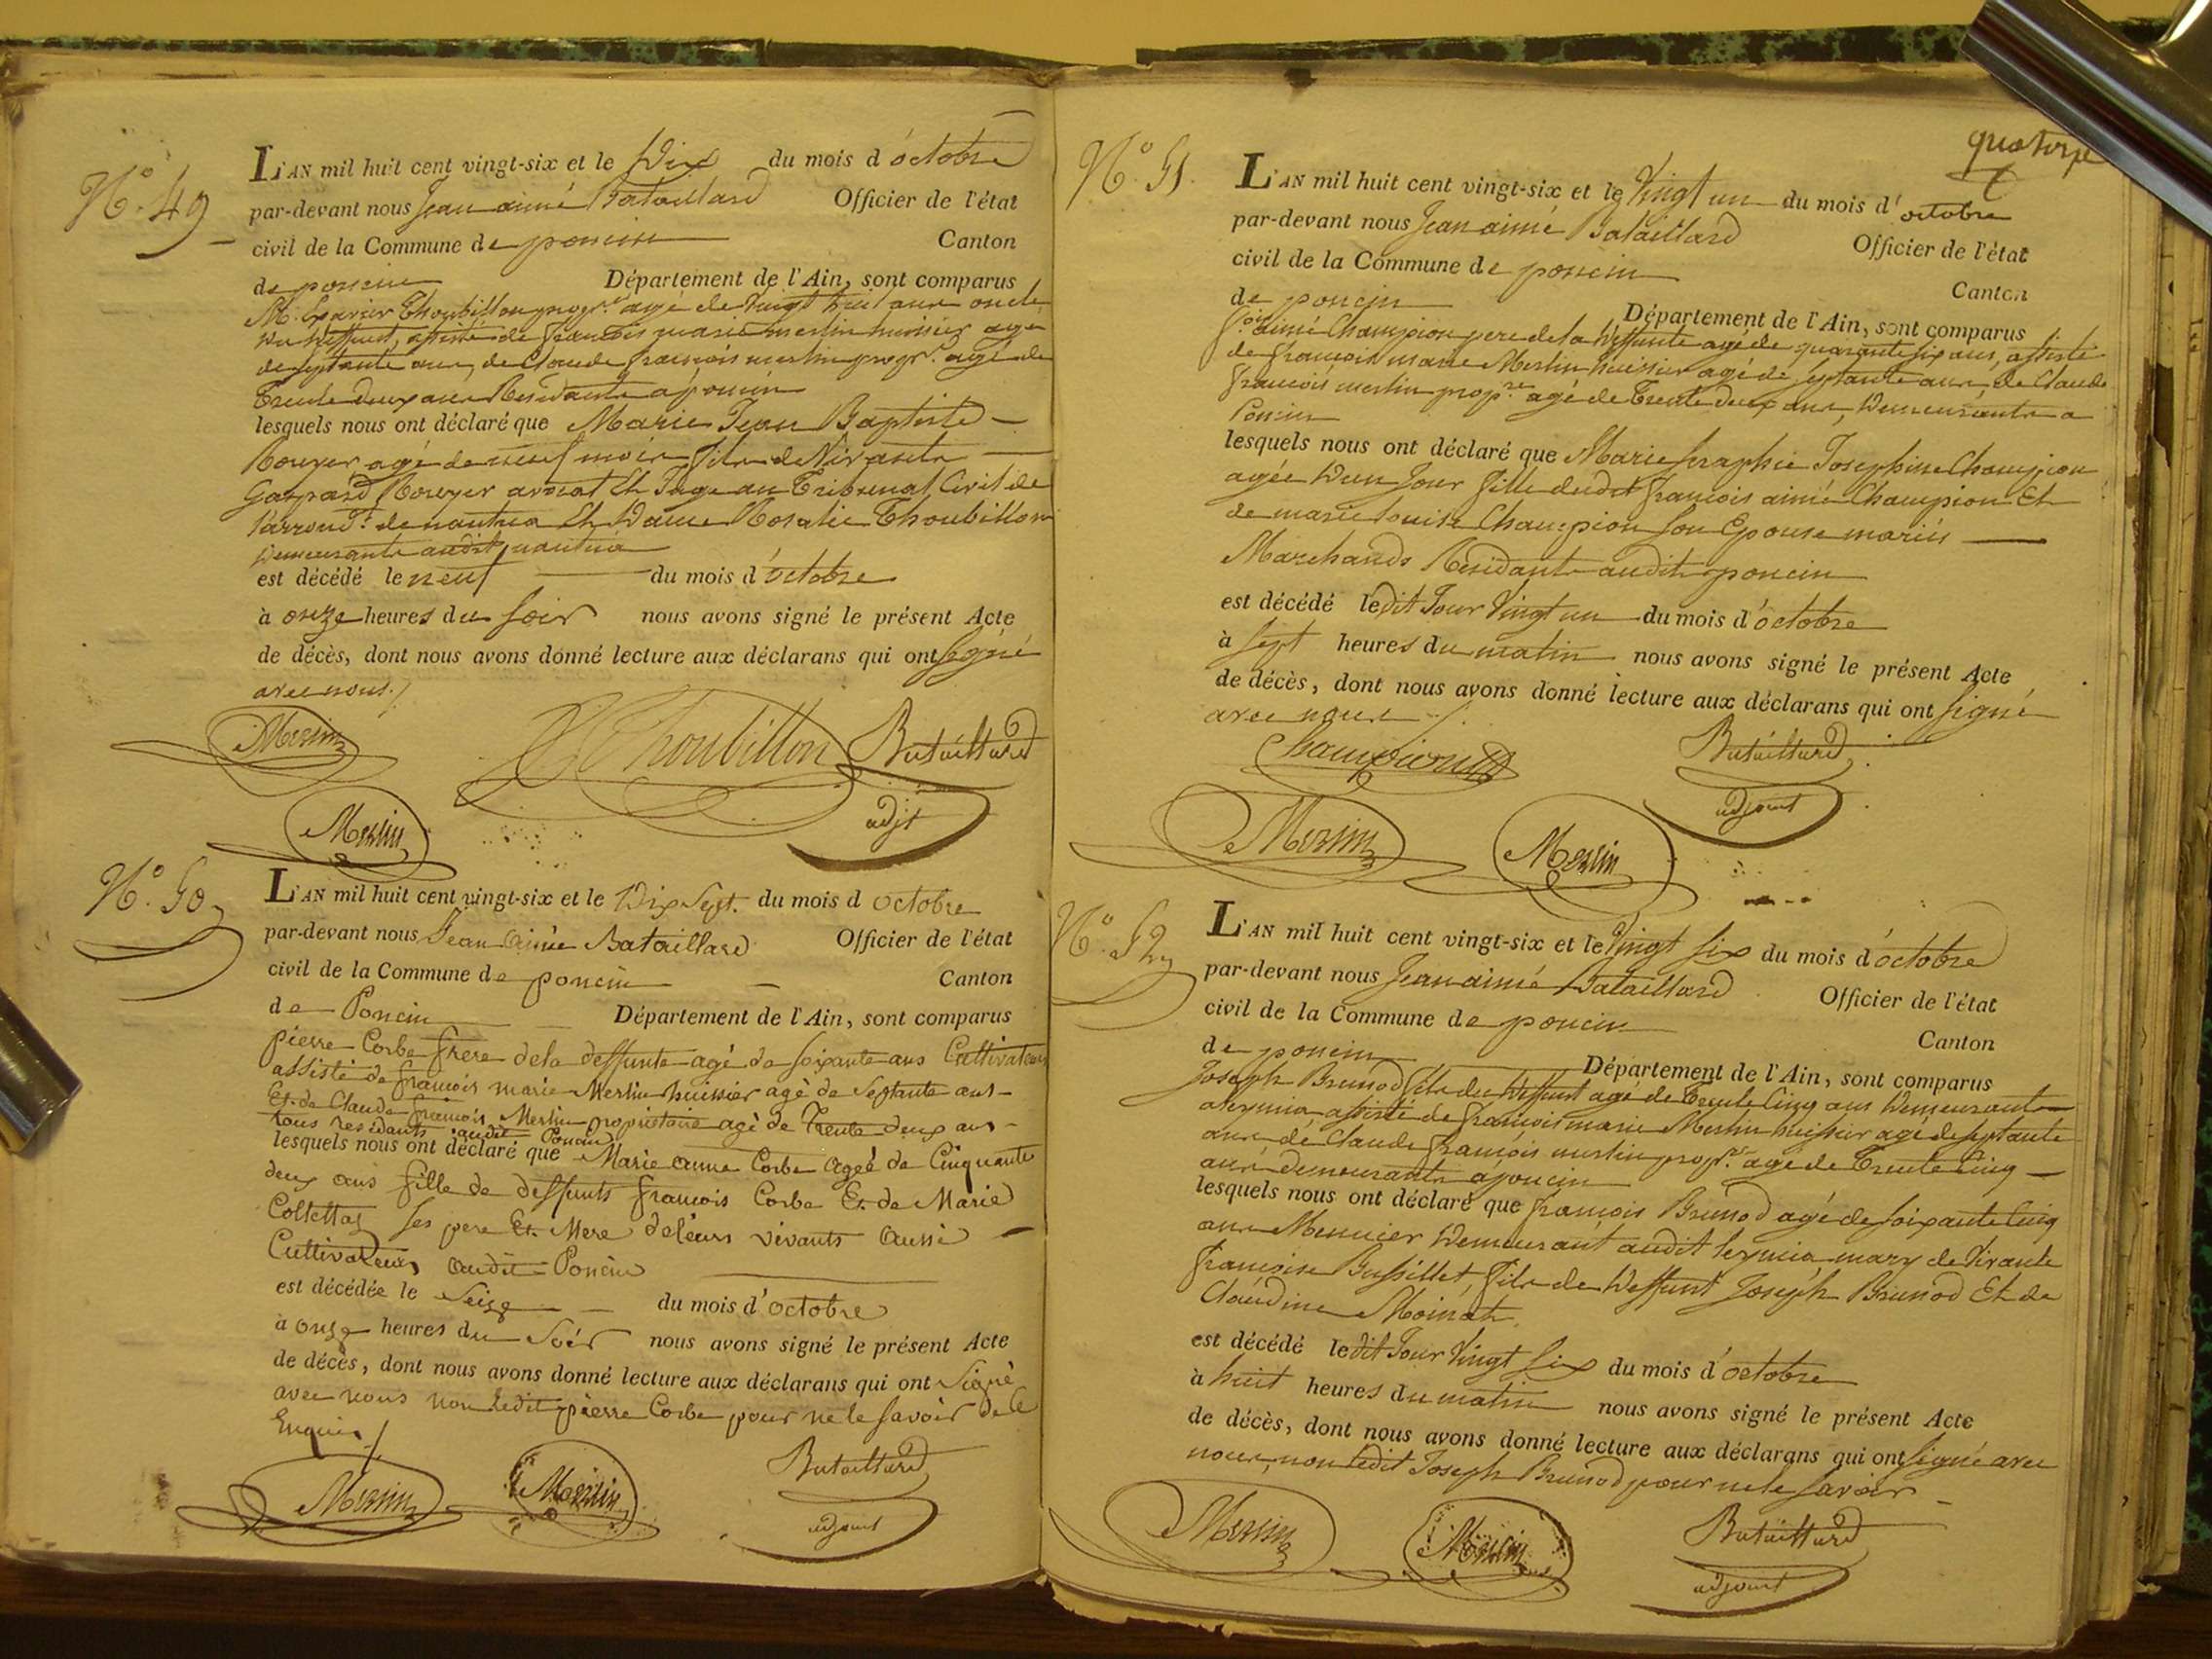 N.° 49
L'AN mil huit cent vingt-six et le Dix du mois d'octobre
par-devant nous Jean aimé Bataillard Officier de l'état
civil de la Commune de poncin Canton
de poncin Département de l'Ain, sont comparus
M. Thoubillon propr.re agé de Vingt huit ans oncle
du deffunt, assisté de francois marie merlin huissier agé
de septante ans, de Claude francois merlin propr.re agé de
Trente deux ans Residants a poncin
lesquels nous ont déclaré que Marie Jean Baptiste
Rouyer agé de neuf mois fils de Vivants
Gaspard Rouyer avocat Et Juge au Tribunal Civil de
l'arrond.t de nantua Et Dame Rosalie Thoubillon
Demeurants audit nantua
est décédé le neuf du mois d'octobre
à onze heures du soir nous avons signé le présent Acte
de décès, dont nous avons donné lecture aux déclarans qui ont signé
avec nous ./.
Merlin Thoubillon Bataillard
adjt
Merlin
N.° 50
L'AN mil huit cent vingt-six et le Dix Sept. du mois d octobre
par-devant nous Jean Aimé Bataillard Officier de l'état
civil de la Commune de poncin Canton
de Poncin Département de l'Ain, sont comparus
pierre Corbe frere dela deffunte agé de soixante ans Cultivateur
assisté de francois marie Merlin huissier agé de Septante ans
Et de Claude francois Merlin propriétaire agé de Trente deux ans
tous residants audit Poncin
lesquels nous ont déclaré que Marie anne Corbe Ageé de Cinquante
deux ans fille de deffunts francois Corbe Et de Marie
Collettaz ses pere Et Mere deleurs vivants Aussi
Cultivateurs audit Poncin
est décédée le Seize du mois d'octobre
à onze heures du Soir nous avons signé le présent Acte
de décès, dont nous avons donné lecture aux déclarans qui ont Signé
avec nous non ledit pierre Corbe pour ne le savoir de ce
Enquis ./.
Merlin Merlin Bataillard
adjoint
quatorze
N.° 51.
L'AN mil huit cent vingt-six et le Vingt un du mois d'octobre
par-devant nous Jean aimé Bataillard Officier de l'état
civil de la Commune de poncin Canton
de poncin Département de l'Ain, sont comparus
f.ois aimé Champion pere de la deffunte agé de quarante six ans, assisté
de francois marie Merlin huissier agé de septante ans, de Claude
francois merlin prop.re agé de Trente deux ans, Demeurants a
Poncin
lesquels nous ont déclaré que Marie Seraphie Josephine Champion
agée d'un jour fille dudit francois aimé Champion Et
de marie louise Champion son Epouse mariés
Marchands Residants audit poncin
est décédé ledit Jour Vingt un du mois d'octobre
à sept heures du matin nous avons signé le présent Acte
de décès, dont nous avons donné lecture aux déclarans qui ont signé
avec nous ./.
Champion Bataillard
adjoint
Merlin Merlin
N.° 52
L'AN mil huit cent vingt-six et le Vingt six du mois d'octobre
par-devant nous Jean aimé Bataillard Officier de l'état
civil de la Commune de poncin Canton
de poncin Département de l'Ain, sont comparus
Joseph Brunod fils du deffunt agé de Trente Cinq ans Demeurant
a assisté de francois marie Merlin huissier agé de septante
ans de Claude francois merlin prop.re agé de Trente Cinq
ans demeurants a poncin
lesquels nous ont déclaré que francois Brunod agé de soixante Cinq
ans Meunier Demeurant audit mary de Vivante
francoise Bussillet, fils de deffunt Joseph Brunod Et de
Claudine Moinat
est décédé ledit Jour Vingt six du mois d'octobre
à huit heures du matin nous avons signé le présent Acte
de décès, dont nous avons donné lecture aux déclarans qui ont signé avec
nous, non ledit Joseph Brunod pour ne le savoir
Merlin Merlin Bataillard
adjoint